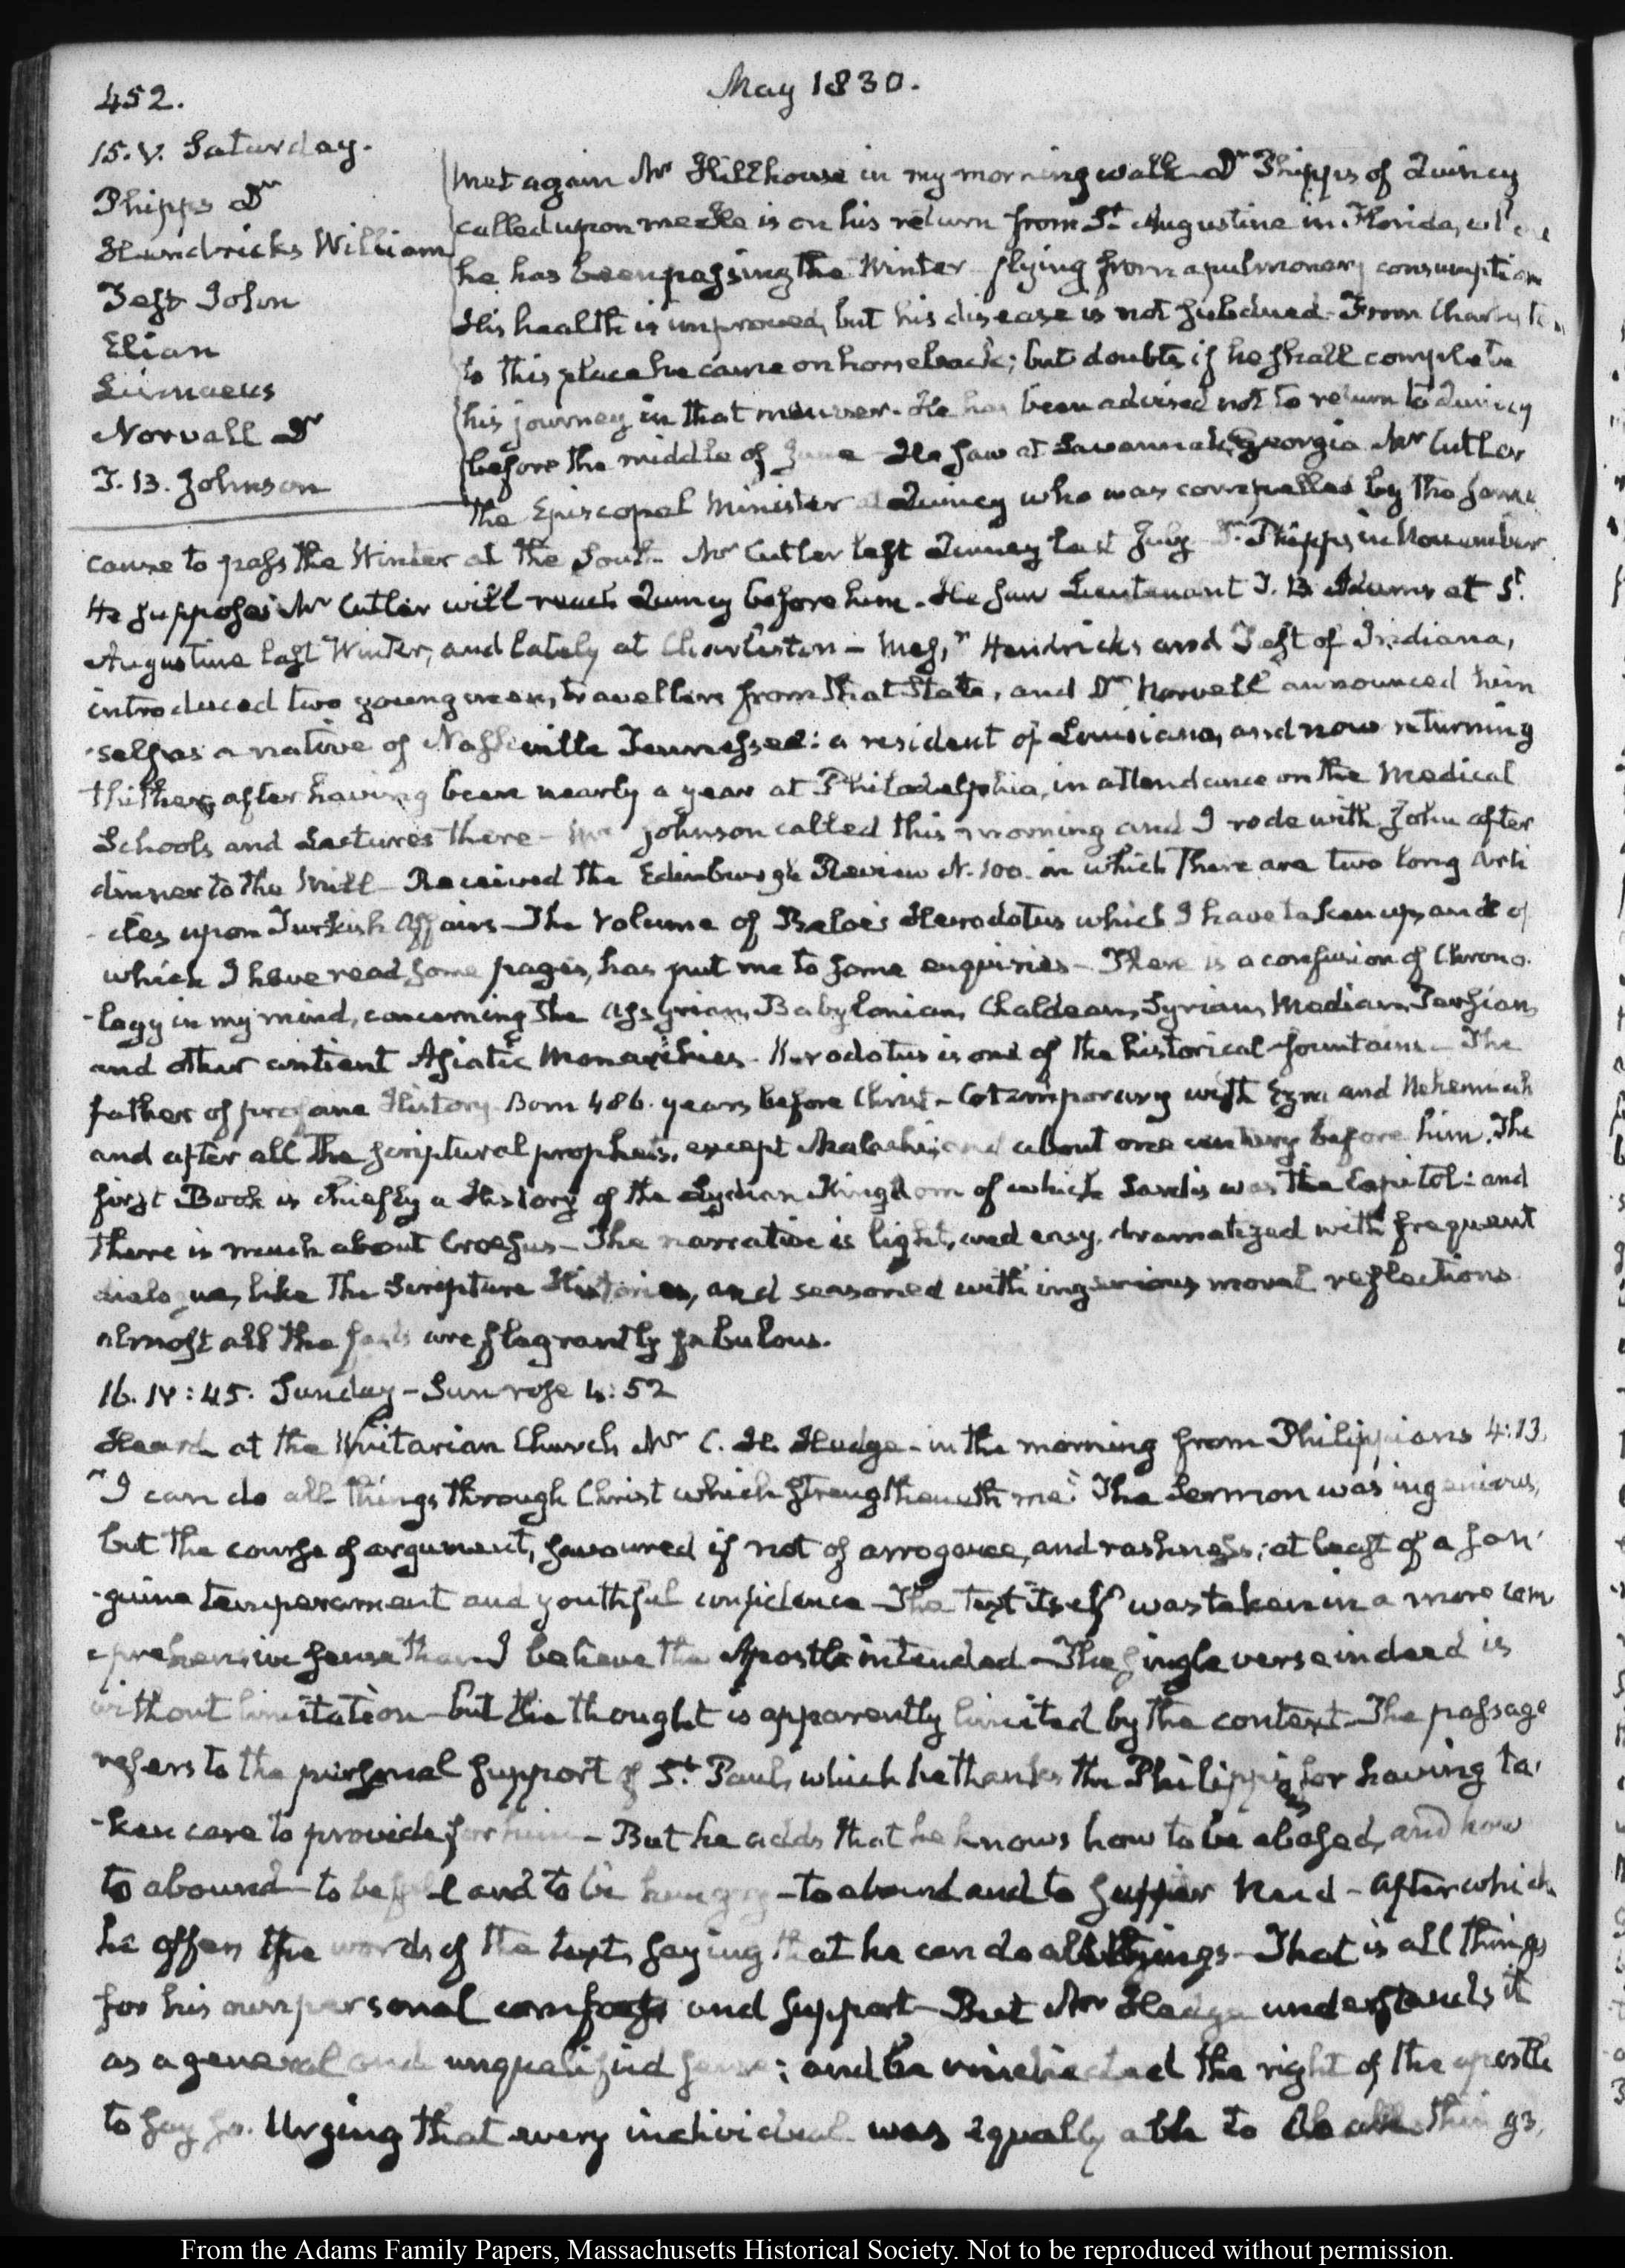 452.
May 1830.
15. V. Saturday.
Phipps Dr
Hendricks William
Test John
Elian
Linnaeus
Norvall Dr
J. B. Johnson
Met again Mr Hillhouse in my morning walk. Dr Phipps of Quincy
called upon me. He is on his return from St. Augustine in Florida, where
he has been passing the Winter flying from a pulmonary consumption
His health is improved, but his disease is not subdued. From Charleston
to this place he came on horseback; but doubts if he shall complete
his journey in that manner. He has been advised not to return to Quincy
before the middle of June. He saw at Savannah, Georgia Mr Cutler
the Episcopal Minister at Quincy who was compelled by the same
cause to pass the Winter at the South. Mr Cutler left Quincy last July Dr. Phipps in November
He supposes Mr Cutler will reach Quincy before him. He saw Lieutenant J. B. Adams at St.
Augustine last Winter, and lately at Charleston – Messrs Hendricks and Test of Indiana,
introduced two young men, travellers from that State, and Dr Norvell announced him
-self as a native of Nashville Tennessee: a resident of Louisiana, and now returning
thither, after having been nearly a year at Philadelphia, in attendance on the Medical
Schools and Lectures there – Mr Johnson called this morning and I rode with John after
dinner to the Mill – Received the Edinburgh Review N. 100. in which there are two long Arti
-cles upon Turkish Affairs – The Volume of Beloe's Herodotus which I have taken up, and of
which I have read some pages, has put me to some enquiries – There is a confusion of Chrono-
-logy in my mind, concerning the Assyrian, Babylonian, Chaldean, Syrian, Median, Persian,
and other antient Asiatic Monarchies. Herodotus is one of the historical fountains – The
father of profane History. Born 486. years before Christ – Cotemporary with Ezra and Nehemiah
and after all the scriptural prophets, except Malachi; and about one century before him. The
first Book is chiefly a History of the Lydian Kingdom of which Sardis was the Capitol: and
there is much about Croesus – The narrative is light, and easy, dramatized with frequent
dialogue, like the Scripture Histories, and seasoned with ingenious moral reflections
almost all the facts are flagrantly fabulous.
16. IV:45. Sunday – Sun rose 4:52
Heard at the Unitarian Church Mr C. H. Hedge – in the morning from Philippians 4:13
"I can do all things through Christ which strengtheneth me." The Sermon was ingenious,
but the course of argument, savoured if not of arrogance, and rashness; at least of a san-
-guine temperament and youthful confidence – The text itself was taken in a more com
-prehensive sense than I believe the Apostle intended – The single verse indeed is
without limitation – but the thought is apparently limited by the context – The passage
refers to the personal support of St. Paul, which he thanks the Philippians for having ta-
-ken care to provide for him – But he adds that he knows how to be abased, and how
to abound – to be full and to be hungry – to abound and to suffer need – after which
he offers the words of the text, saying that he can do all things – That is all things
for his own personal comforts and support – But Mr Hedge understands it
as a general and unqualified sense; and he vindicated the right of the apostle
to say so. Urging that every individual was equally able to do all things,
From the Adams Family Papers, Massachusetts Historical Society. Not to be reproduced without permission.